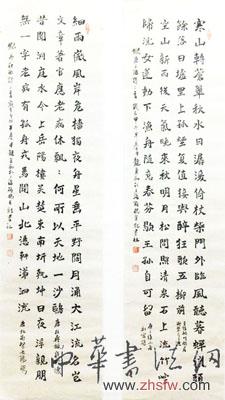 寒山轉蒼翠秋水日潺湲倚杖柴門外臨風聽暮蟬渡頭
餘落日墟里上孤煙復值接輿醉狂歌五柳前
空山新雨後天氣晚來秋明月松間照清泉石上流竹喧
歸浣女蓮動下漁舟隨意春芳歇王孫自可留
細雨微風岸危檣獨夜舟星垂平野闊月湧大江流名豈
文章著官應老病休飄飄何所以天地一沙鷗
昔聞洞庭水今上岳陽樓吳楚東南坼乾坤日夜浮親朋
無一字老病有孤舟戎馬關山北憑軒涕泗流
中華書法網
www.zhsfw.com